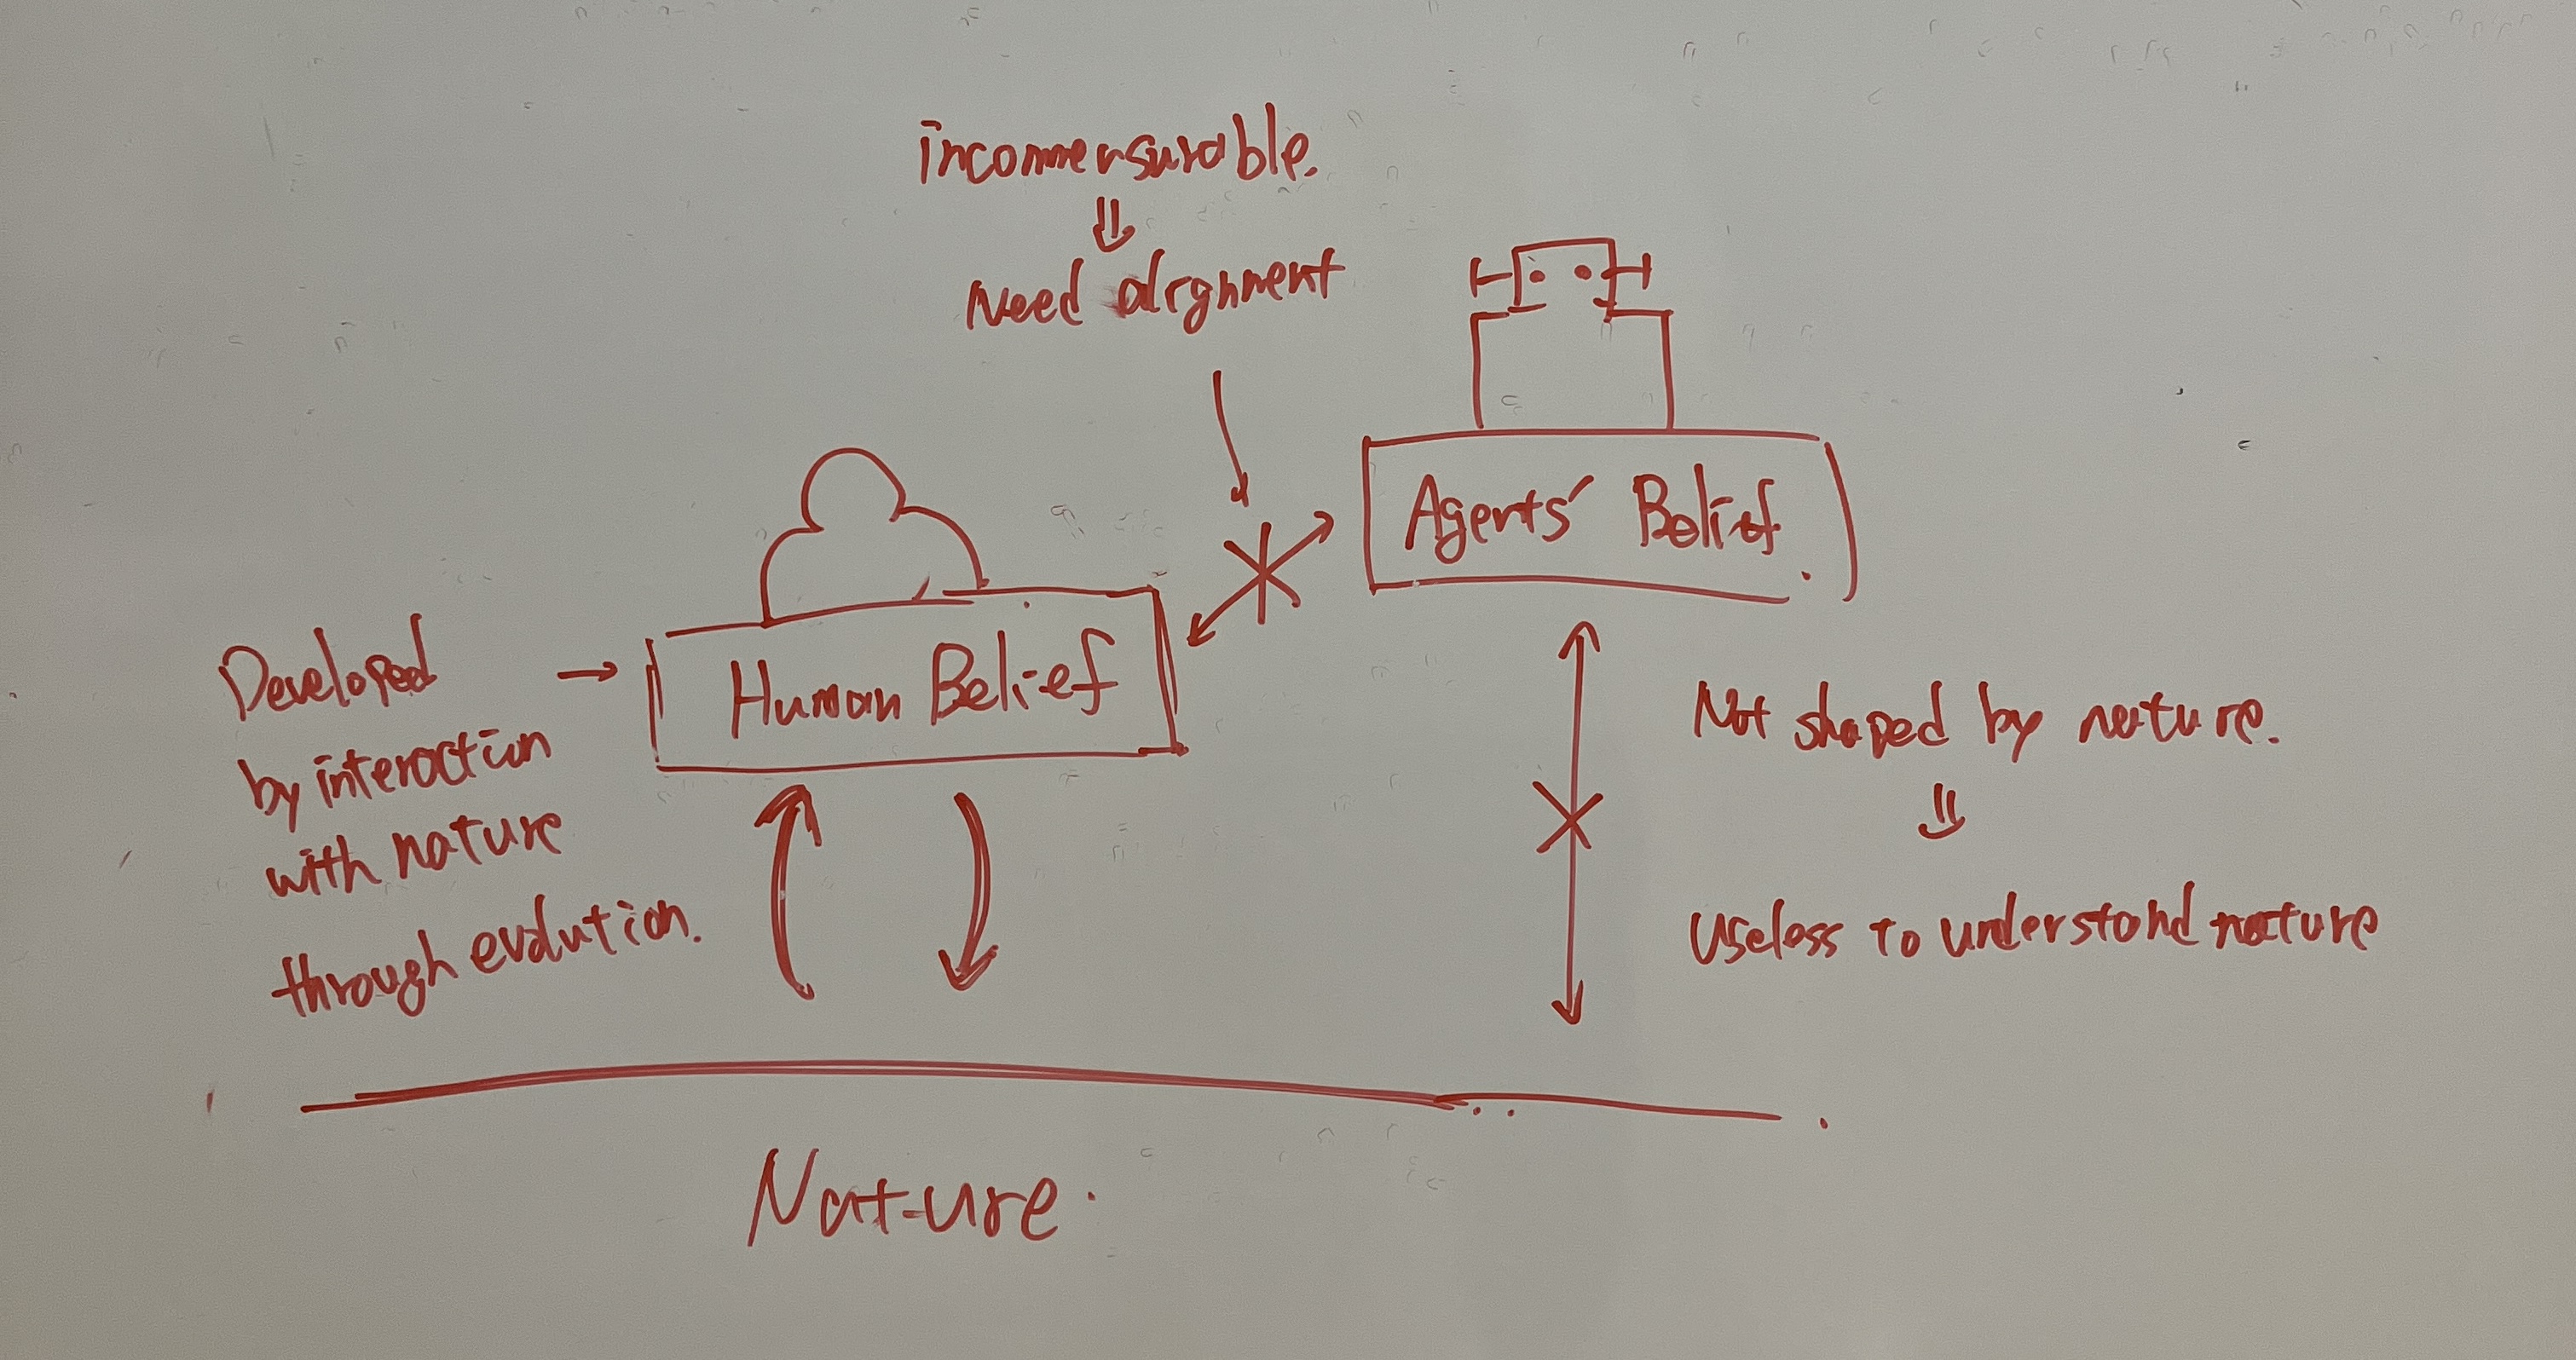 incommensurable.
⇓
Need alignment
Agents' Belief
Human Belief
Developed
by interaction
with nature
through evolution.
Not shaped by nature.
⇓
Useless to understand nature
Nature.